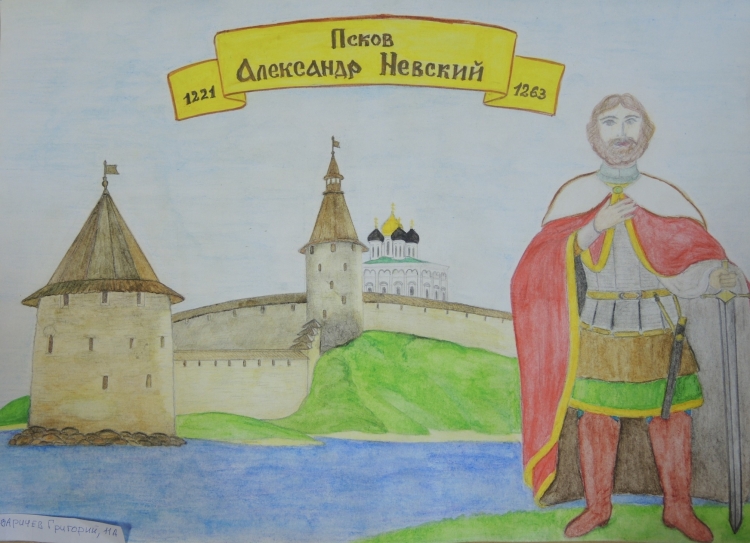 Псков
Александр Невский
1221
1263
Григорий, 11А